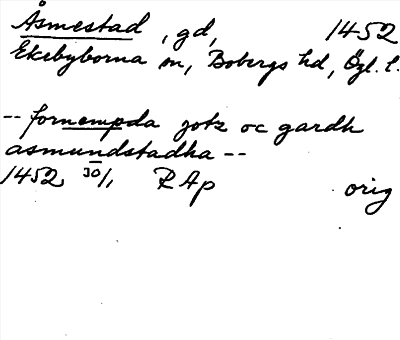 Åsmestad, gd, 1452
Ekebyborna sn, Bobergs hd, Ögl. l.
-- fornempda jotz oc gardh
asmundstadha --
1452 30/1 RAp orig